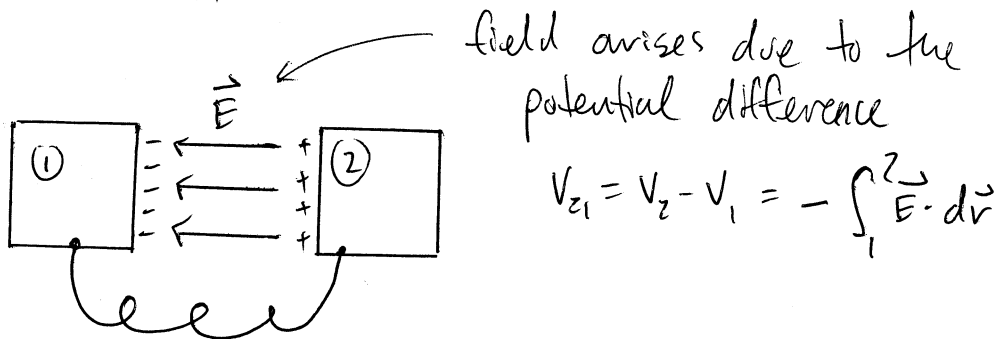 field arises due to the
potential difference
E⃗
① - + ②
- +
- +
- +
- +
V₂₁ = V₂ - V₁ = - ∫₁² E⃗ · dr⃗